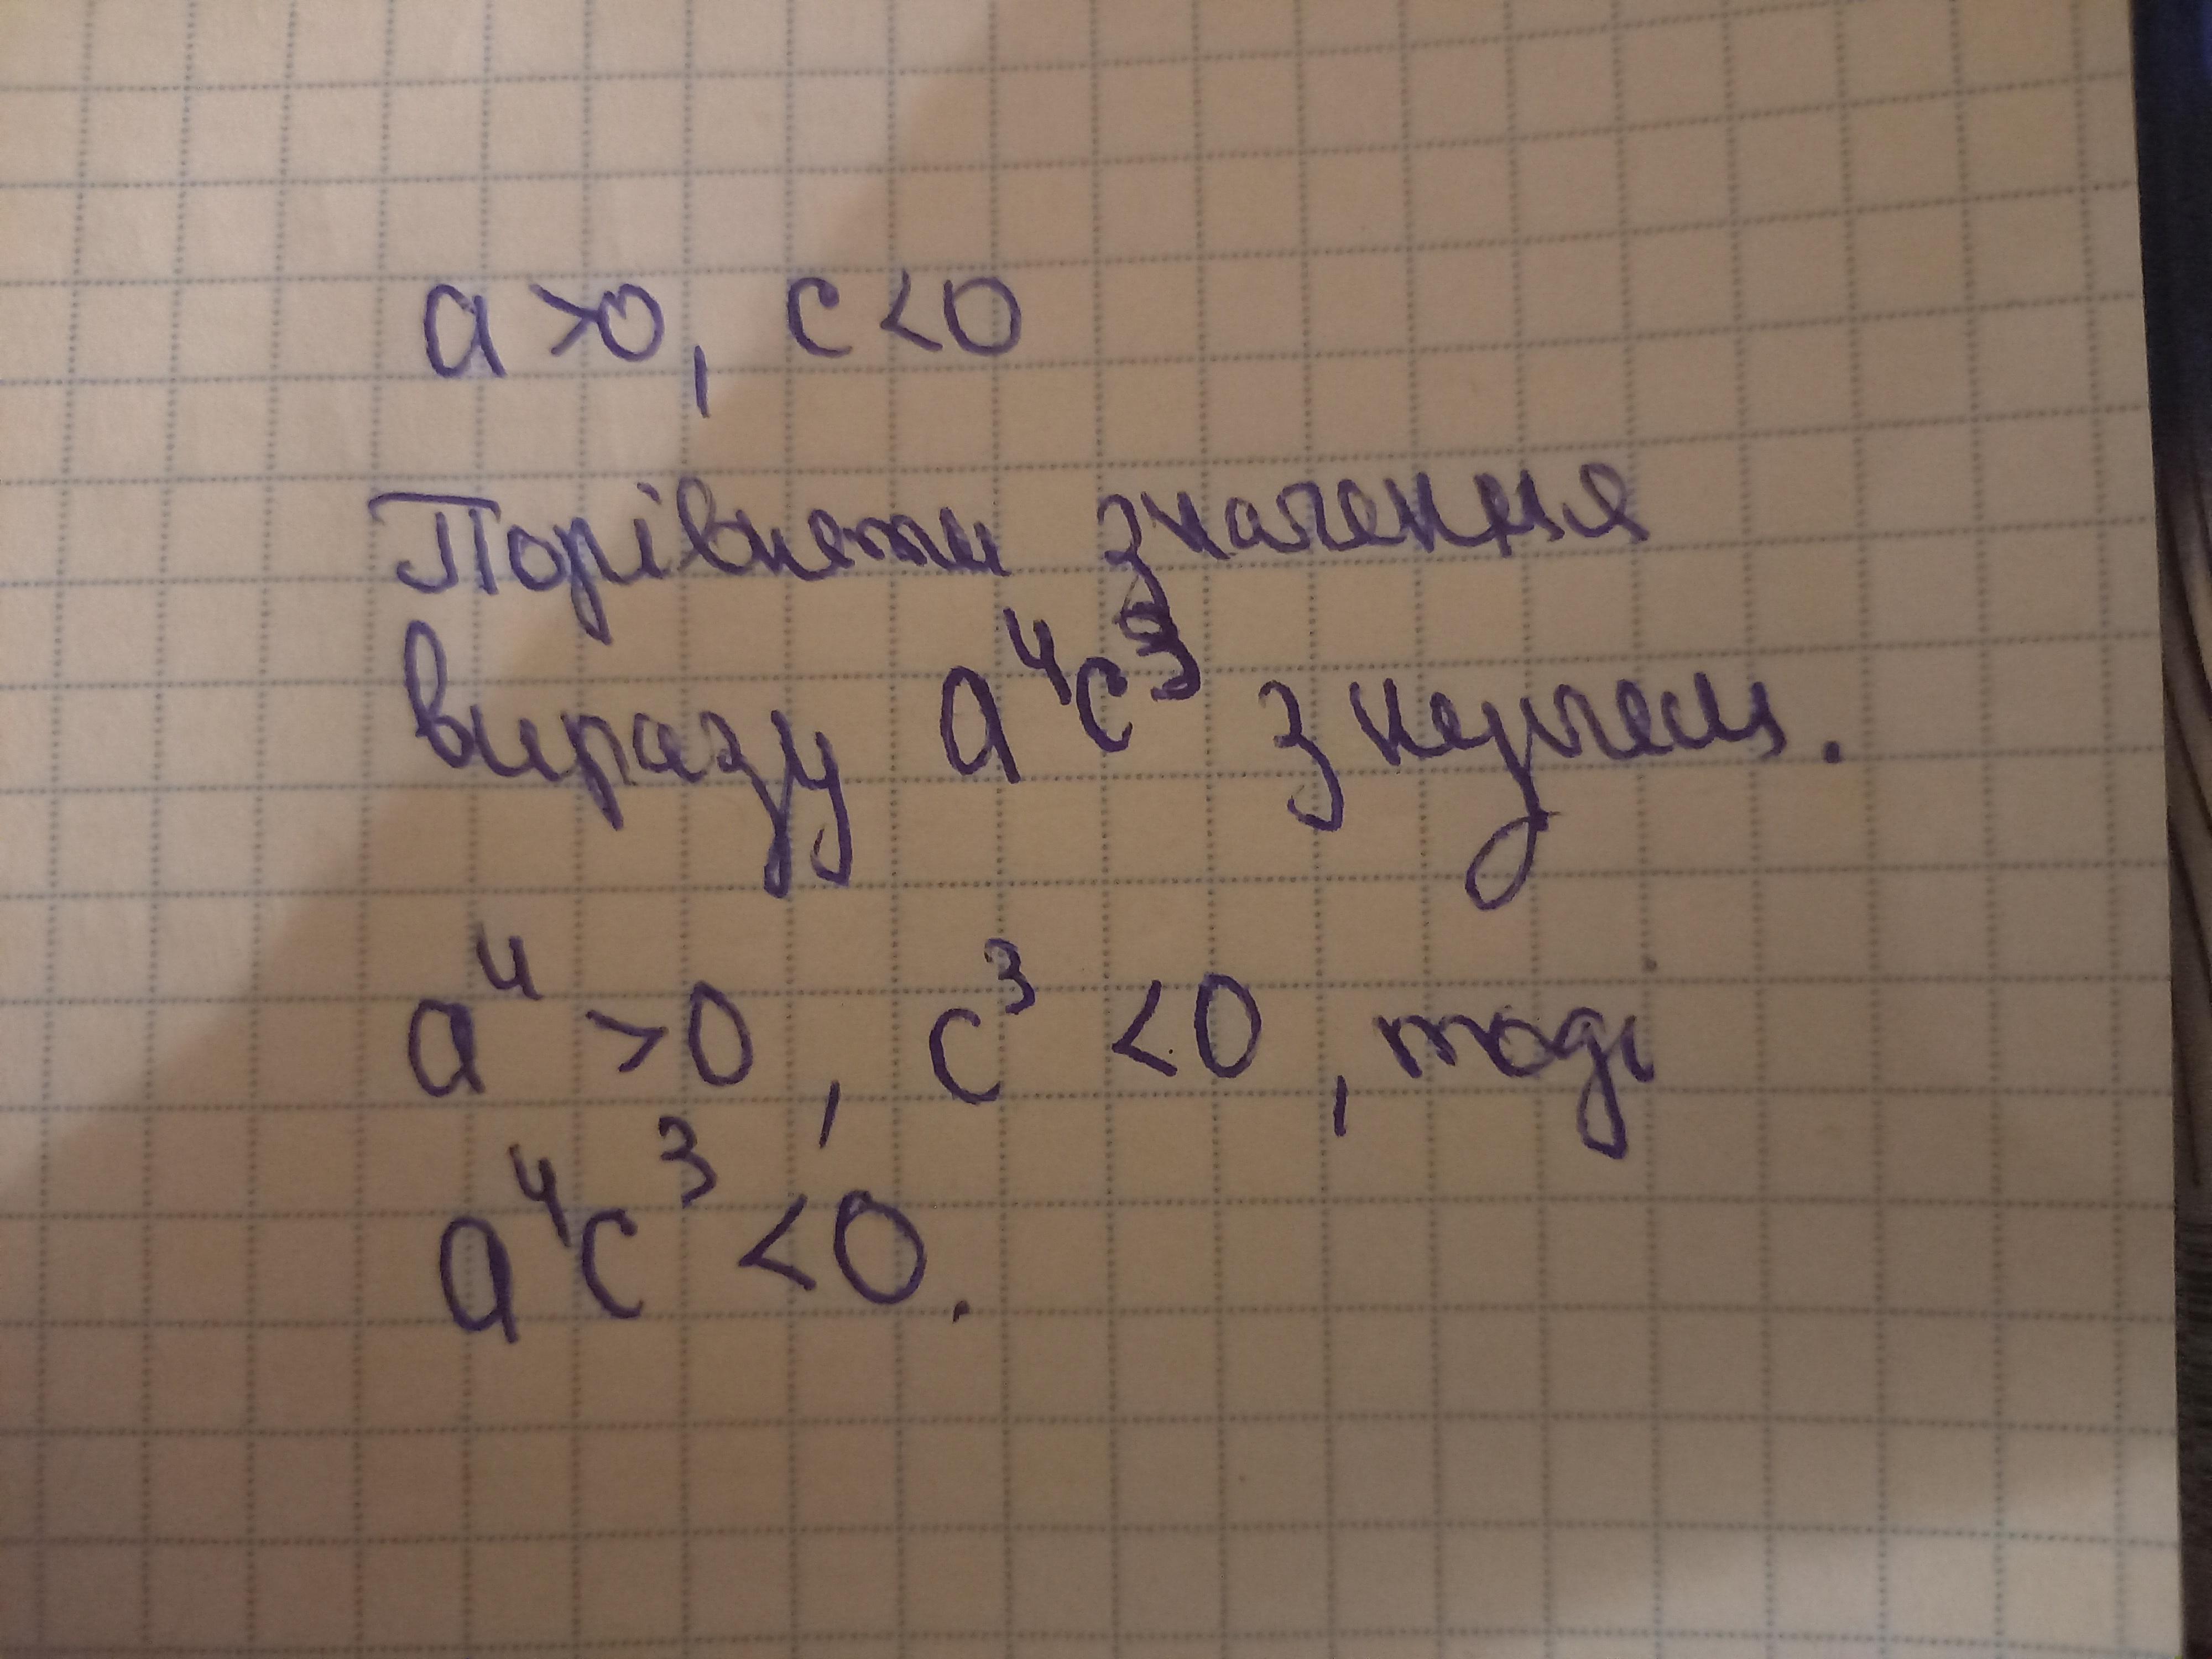 a >0, c <0
Порівняти значення
виразу a⁴c³ з нулем.
a⁴ >0, c³ <0, тоді
a⁴c³ <0.